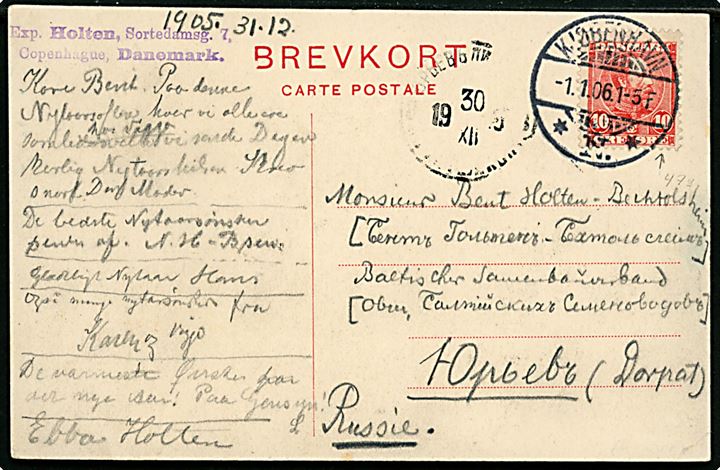 1905. 31.12.
Exp. Holten, Sortedamsg. 7,
Copenhague, Danemark.
BREVKORT
CARTE POSTALE
KJØBENHAVN
-1.1.06.1-5F
K.
10 10
30
XII
19
Kære Bent. Paa denne
Nytaarsaften, hvor vi alle ere
samlede
Kærlig Nytaarshilsen. Skriv
snart Din Moder
De bedste Nytaarsønsker
N. H.
Glædeligt Nytaar Hans
Også mange nytårsønsker fra
Karen og Viggo
De varmeste Ønsker for
det nye Aar! Paa Gensyn!
Ebba Holten
Monsieur Bent Holten-Bechtolsheim
[Бентъ Гольтенъ-Бехтольсгеймъ]
Baltischer Samenbauverband
[Общ. Балтійскихъ Семеноводовъ]
Юрьевъ (Dorpat)
Russie.